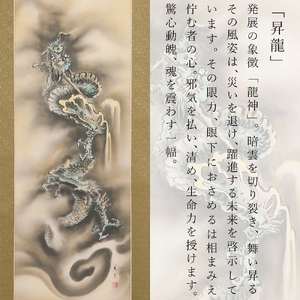 「昇龍」
発展の象徴「龍神」。暗雲を切り裂き、舞い昇る
その風姿は、災いを退け、躍進する未来を啓示して
います。その眼力、眼下におさめるは相まみえ
佇む者の心。邪気を払い、清め、生命力を授けます。
驚心動魄、魂を震わす一幅。